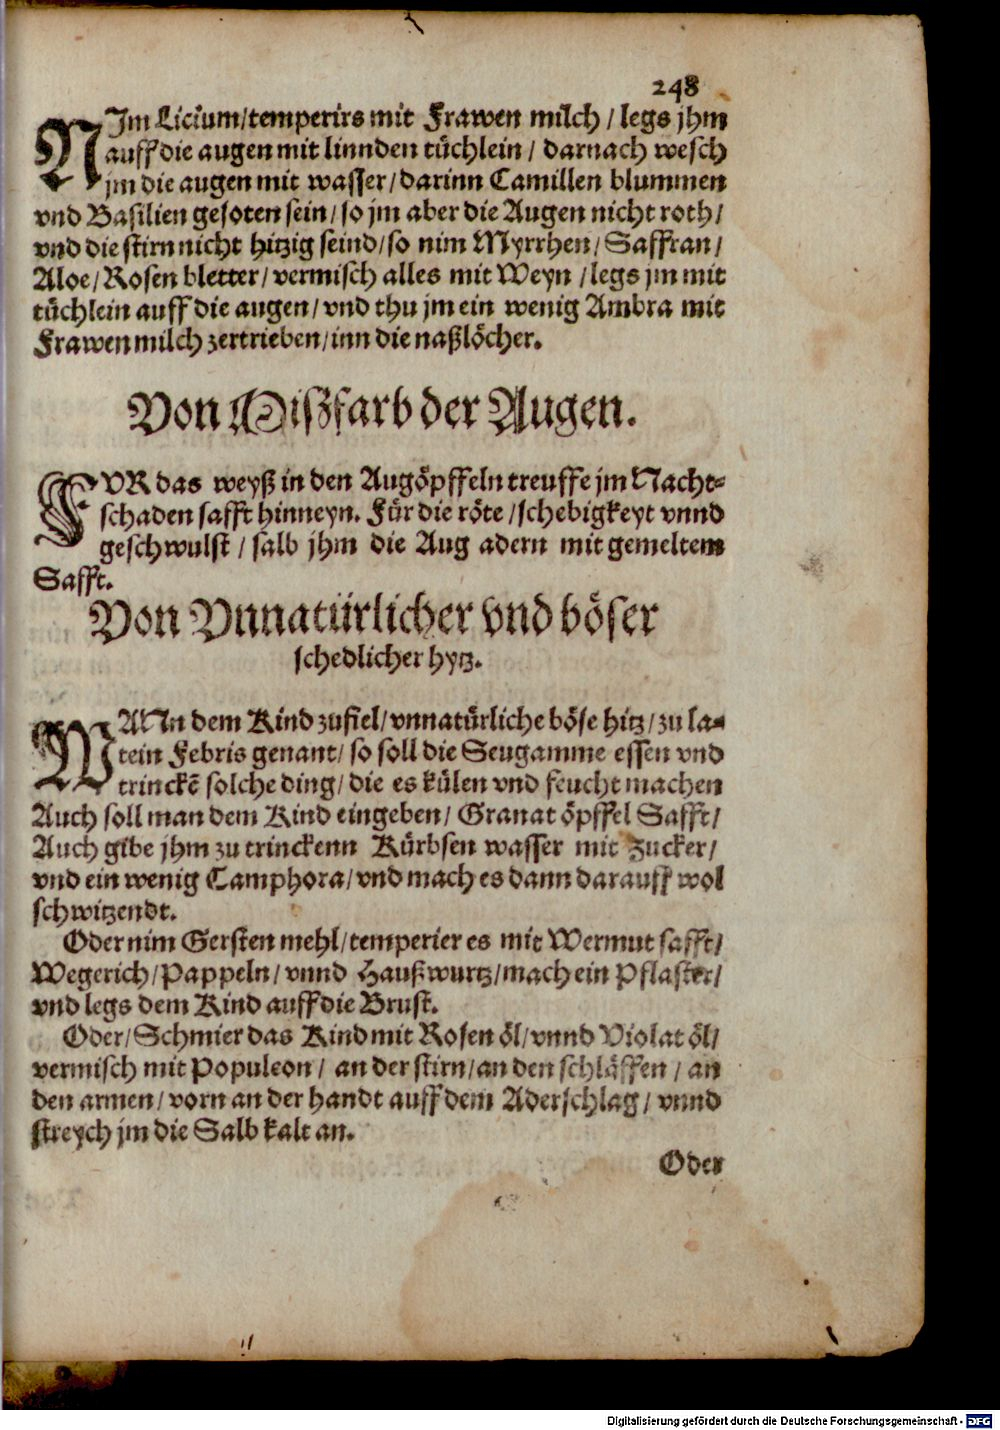 248
NJm Licium/temperirs mit Frawen milch/legs jhm
auff die augen mit linnden tüchlein/ darnach wesch
jm die augen mit wasser/darinn Camillen blummen
vnd Basilien gesoten sein/so jm aber die Augen nicht roth/
vnd die stirn nicht hitzig seind/so nim Myrrhen/Saffran/
Aloe/Rosen bletter/vermisch alles mit Weyn/legs jm mit
tüchlein auff die augen/vnd thu jm ein wenig Ambra mit
Frawen milch zertrieben/inn die naßlöcher.
Von Miszfarb der Augen.
FVR das weyß in den Augöpffeln treuffe jm Nacht-
schaden safft hinneyn. Für die röte/schebigkeyt vnnd
geschwulst/ salb jhm die Aug adern mit gemeltem
Safft.
Von Vnnatürlicher vnd böser
schedlicher hytz.
WANn dem Kind zufiel/vnnatürliche böse hitz/zu la-
tein Febris genant/so soll die Seugamme essen vnd
trinckē solche ding/die es külen vnd feucht machen
Auch soll man dem Kind eingeben/ Granat öpffel Safft/
Auch gibe jhm zu trinckenn Kürbsen wasser mit Zucker/
vnd ein wenig Camphora/vnd mach es dann darauff wol
schwitzendt.
Oder nim Gersten mehl/temperier es mit Wermut safft/
Wegerich/Pappeln/vnnd Haußwurtz/mach ein Pflaster/
vnd legs dem Kind auff die Brust.
Oder/Schmier das Kind mit Rosen öl/vnnd Violat öl/
vermisch mit Populeon/ an der stirn/an den schläffen/an
den armen/vorn an der handt auff dem Aderschlag/ vnnd
streych jm die Salb kalt an.
Oder
Digitalisierung gefördert durch die Deutsche Forschungsgemeinschaft - DFG